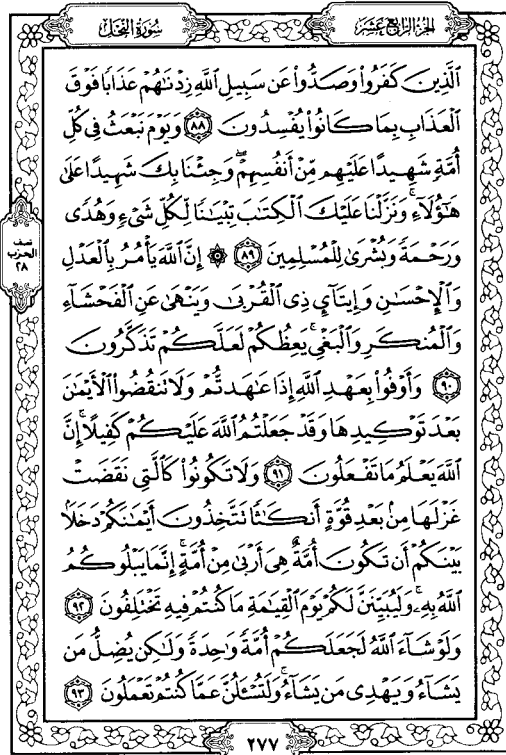 سُورَةُ النَّحْلِ
الجُزْءُ الرَّابِعَ عَشَرَ
ٱلَّذِينَ كَفَرُوا۟ وَصَدُّوا۟ عَن سَبِيلِ ٱللَّهِ زِدْنَٰهُمْ عَذَابًا فَوْقَ
ٱلْعَذَابِ بِمَا كَانُوا۟ يُفْسِدُونَ ٨٨ وَيَوْمَ نَبْعَثُ فِى كُلِّ
أُمَّةٍ شَهِيدًا عَلَيْهِم مِّنْ أَنفُسِهِمْ ۖ وَجِئْنَا بِكَ شَهِيدًا عَلَىٰ
هَٰٓؤُلَآءِ ۚ وَنَزَّلْنَا عَلَيْكَ ٱلْكِتَٰبَ تِبْيَٰنًا لِّكُلِّ شَىْءٍ وَهُدًى
وَرَحْمَةً وَبُشْرَىٰ لِلْمُسْلِمِينَ ٨٩ ۞ إِنَّ ٱللَّهَ يَأْمُرُ بِٱلْعَدْلِ
وَٱلْإِحْسَٰنِ وَإِيتَآئِ ذِى ٱلْقُرْبَىٰ وَيَنْهَىٰ عَنِ ٱلْفَحْشَآءِ
وَٱلْمُنكَرِ وَٱلْبَغْىِ ۚ يَعِظُكُمْ لَعَلَّكُمْ تَذَكَّرُونَ
٩٠ وَأَوْفُوا۟ بِعَهْدِ ٱللَّهِ إِذَا عَٰهَدتُّمْ وَلَا تَنقُضُوا۟ ٱلْأَيْمَٰنَ
بَعْدَ تَوْكِيدِهَا وَقَدْ جَعَلْتُمُ ٱللَّهَ عَلَيْكُمْ كَفِيلًا ۚ إِنَّ
ٱللَّهَ يَعْلَمُ مَا تَفْعَلُونَ ٩١ وَلَا تَكُونُوا۟ كَٱلَّتِى نَقَضَتْ
غَزْلَهَا مِنۢ بَعْدِ قُوَّةٍ أَنكَٰثًا تَتَّخِذُونَ أَيْمَٰنَكُمْ دَخَلًۢا
بَيْنَكُمْ أَن تَكُونَ أُمَّةٌ هِىَ أَرْبَىٰ مِنْ أُمَّةٍ ۚ إِنَّمَا يَبْلُوكُمُ
ٱللَّهُ بِهِۦ ۚ وَلَيُبَيِّنَنَّ لَكُمْ يَوْمَ ٱلْقِيَٰمَةِ مَا كُنتُمْ فِيهِ تَخْتَلِفُونَ ٩٢
وَلَوْ شَآءَ ٱللَّهُ لَجَعَلَكُمْ أُمَّةً وَٰحِدَةً وَلَٰكِن يُضِلُّ مَن
يَشَآءُ وَيَهْدِى مَن يَشَآءُ ۚ وَلَتُسْـَٔلُنَّ عَمَّا كُنتُمْ تَعْمَلُونَ ٩٣
نصف
الحزب
٢٨
٢٧٧